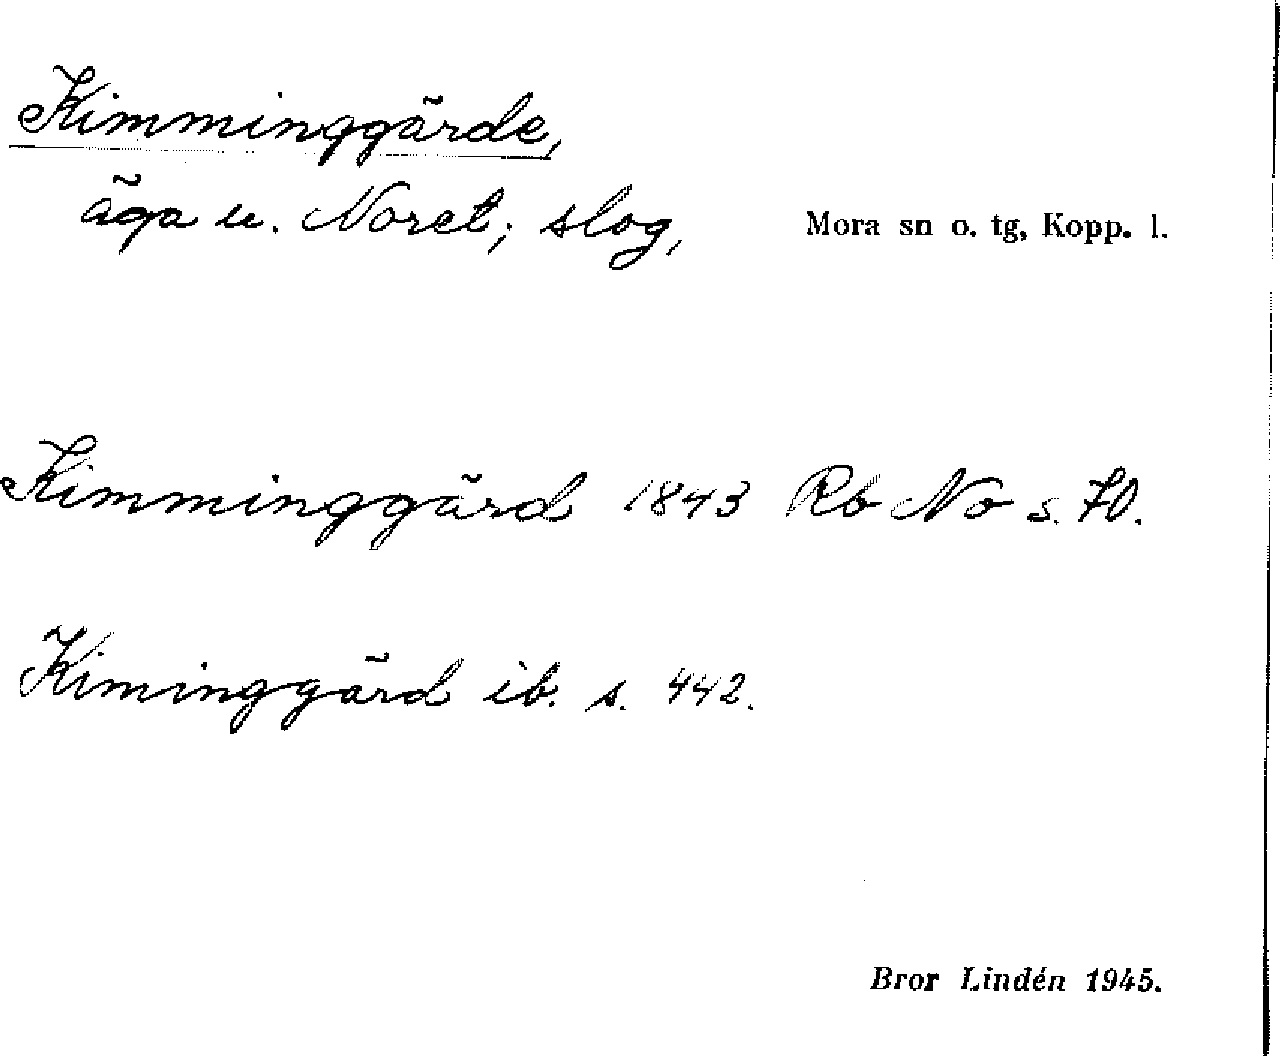 Kimminggärde,
äga u. Noret; slog,
Mora sn o. tg, Kopp. l.
Kimminggärd 1843 Rb No s. 70.
Kiminggärd ib. s. 442.
Bror Lindén 1945.